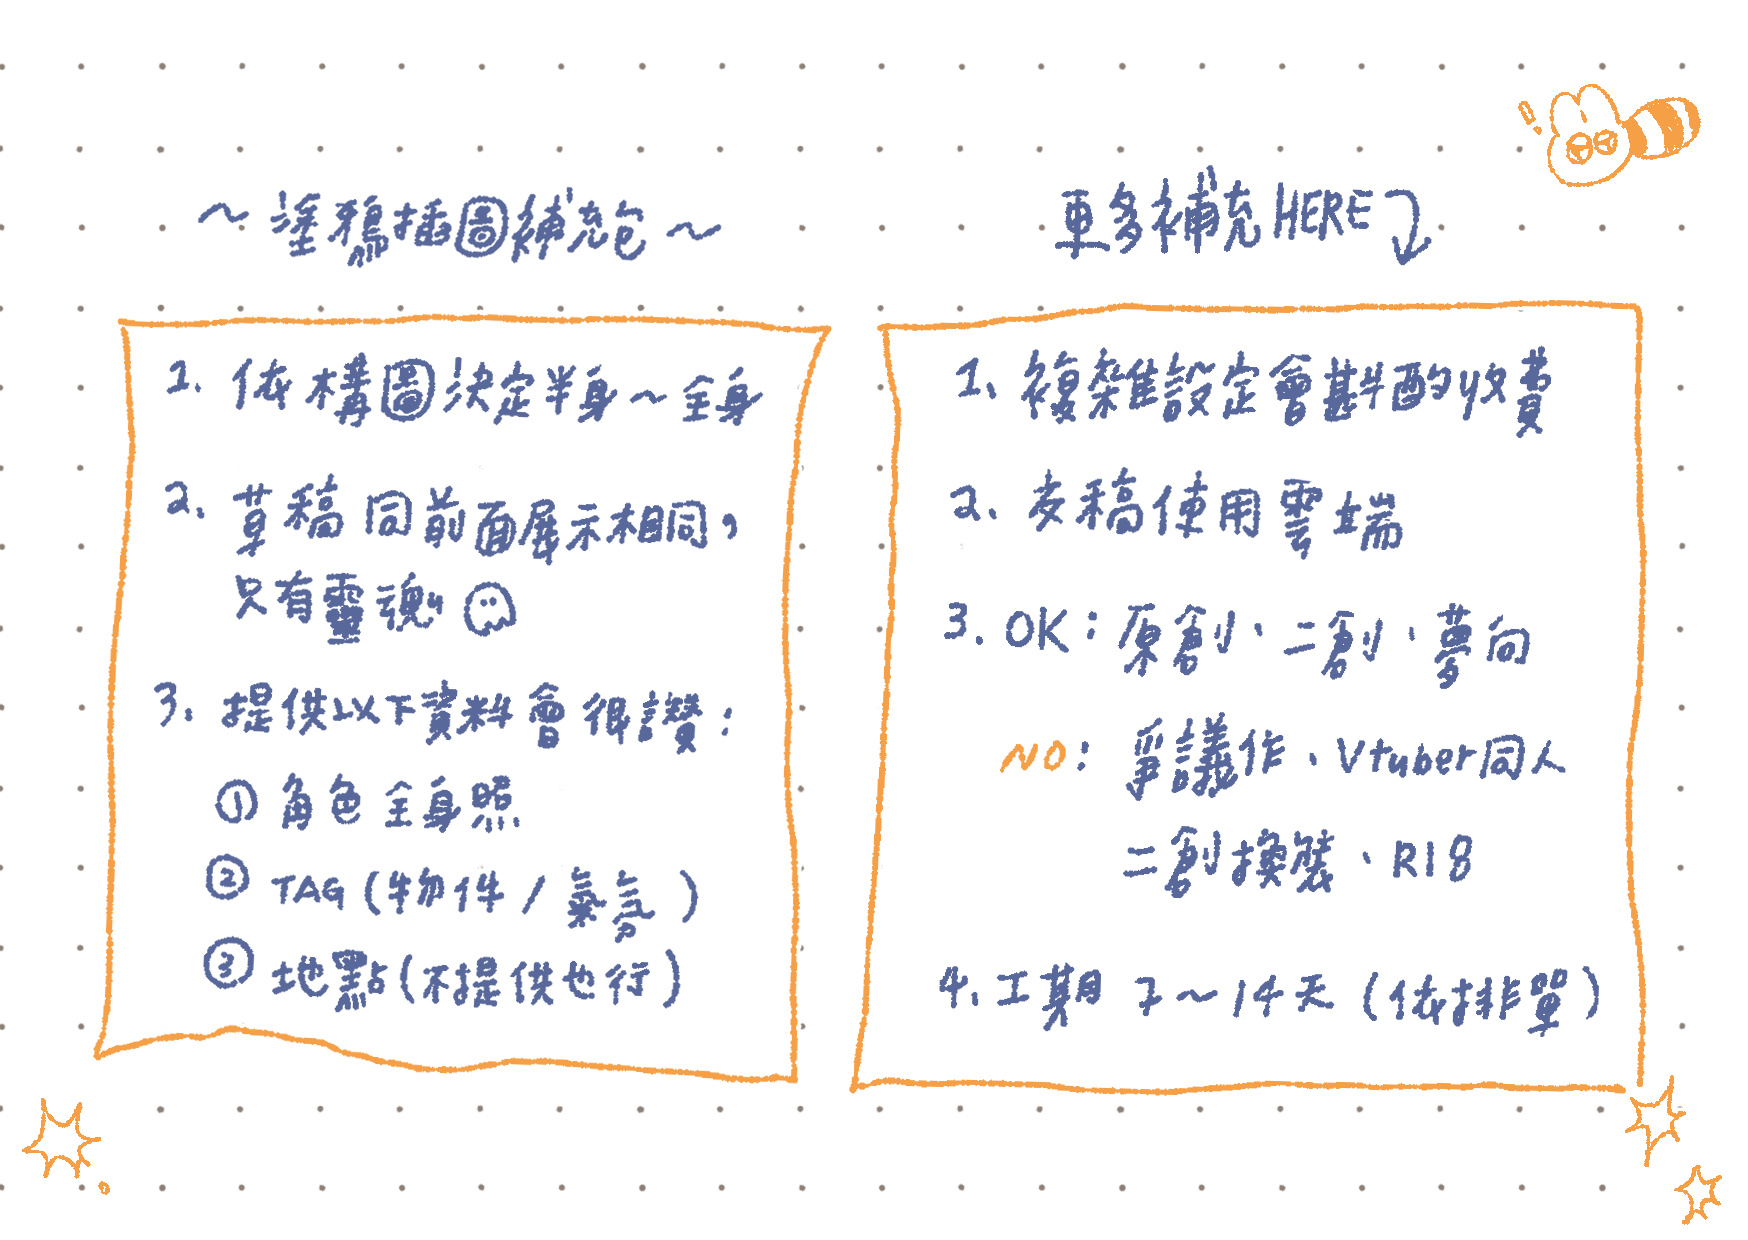 ～塗鴉插圖補充包～
1. 依構圖決定半身～全身
2. 草稿同前面展示相同，
只有靈魂
3. 提供以下資料會很讚：
① 角色全身照
② TAG (物件 / 氣氛)
③ 地點 (不提供也行)
更多補充HERE
1. 複雜設定會斟酌收費
2. 交稿使用雲端
3. OK：原創、二創、夢向
NO：爭議作、Vtuber同人
二創換裝、R18
4. 工期 7～14天 (依排單)